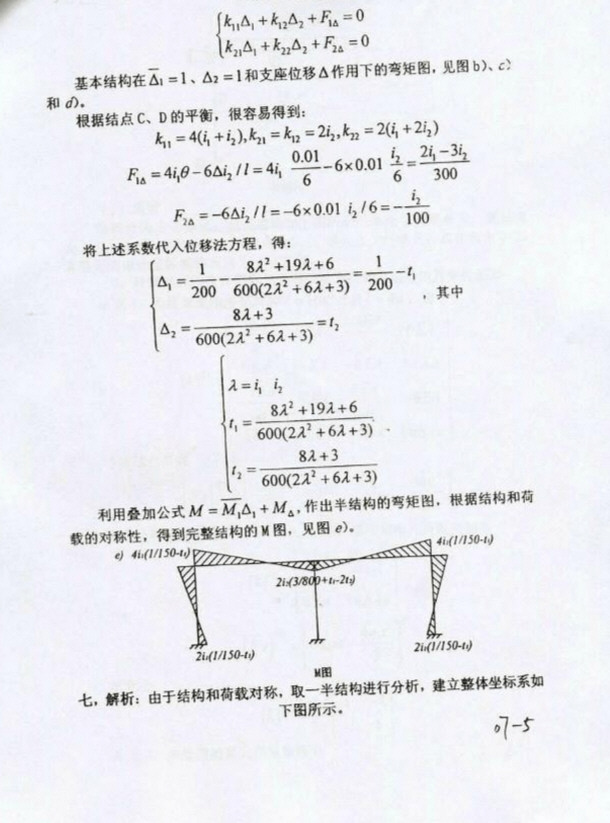 k₁₁Δ₁+k₁₂Δ₂+F₁Δ=0
k₂₁Δ₁+k₂₂Δ₂+F₂Δ=0
基本结构在Δ̅₁=1、Δ₂=1和支座位移Δ作用下的弯矩图，见图b)、c)
和d)。
根据结点C、D的平衡，很容易得到：
k₁₁=4(i₁+i₂),k₂₁=k₁₂=2i₂,k₂₂=2(i₁+2i₂)
F₁Δ=4i₁θ-6Δi₂/l=4i₁ 0.01/6-6×0.01 i₂/6=(2i₁-3i₂)/300
F₂Δ=-6Δi₂/l=-6×0.01 i₂/6=-i₂/100
将上述系数代入位移法方程，得：
Δ₁=1/200-(8λ²+19λ+6)/600(2λ²+6λ+3)=1/200-t₁
，其中
Δ₂=(8λ+3)/600(2λ²+6λ+3)=t₂
λ=i₁ i₂
t₁=(8λ²+19λ+6)/600(2λ²+6λ+3)
t₂=(8λ+3)/600(2λ²+6λ+3)
利用叠加公式M=M̅₁Δ₁+MΔ,作出半结构的弯矩图，根据结构和荷
载的对称性，得到完整结构的M图，见图e)。
e) 4i₁(1/150-t₁)
4i₁(1/150-t₁)
2i₂(3/800+t₁-2t₂)
2i₁(1/150-t₁)
2i₁(1/150-t₁)
M图
七，解析：由于结构和荷载对称，取一半结构进行分析，建立整体坐标系如
下图所示。
07-5